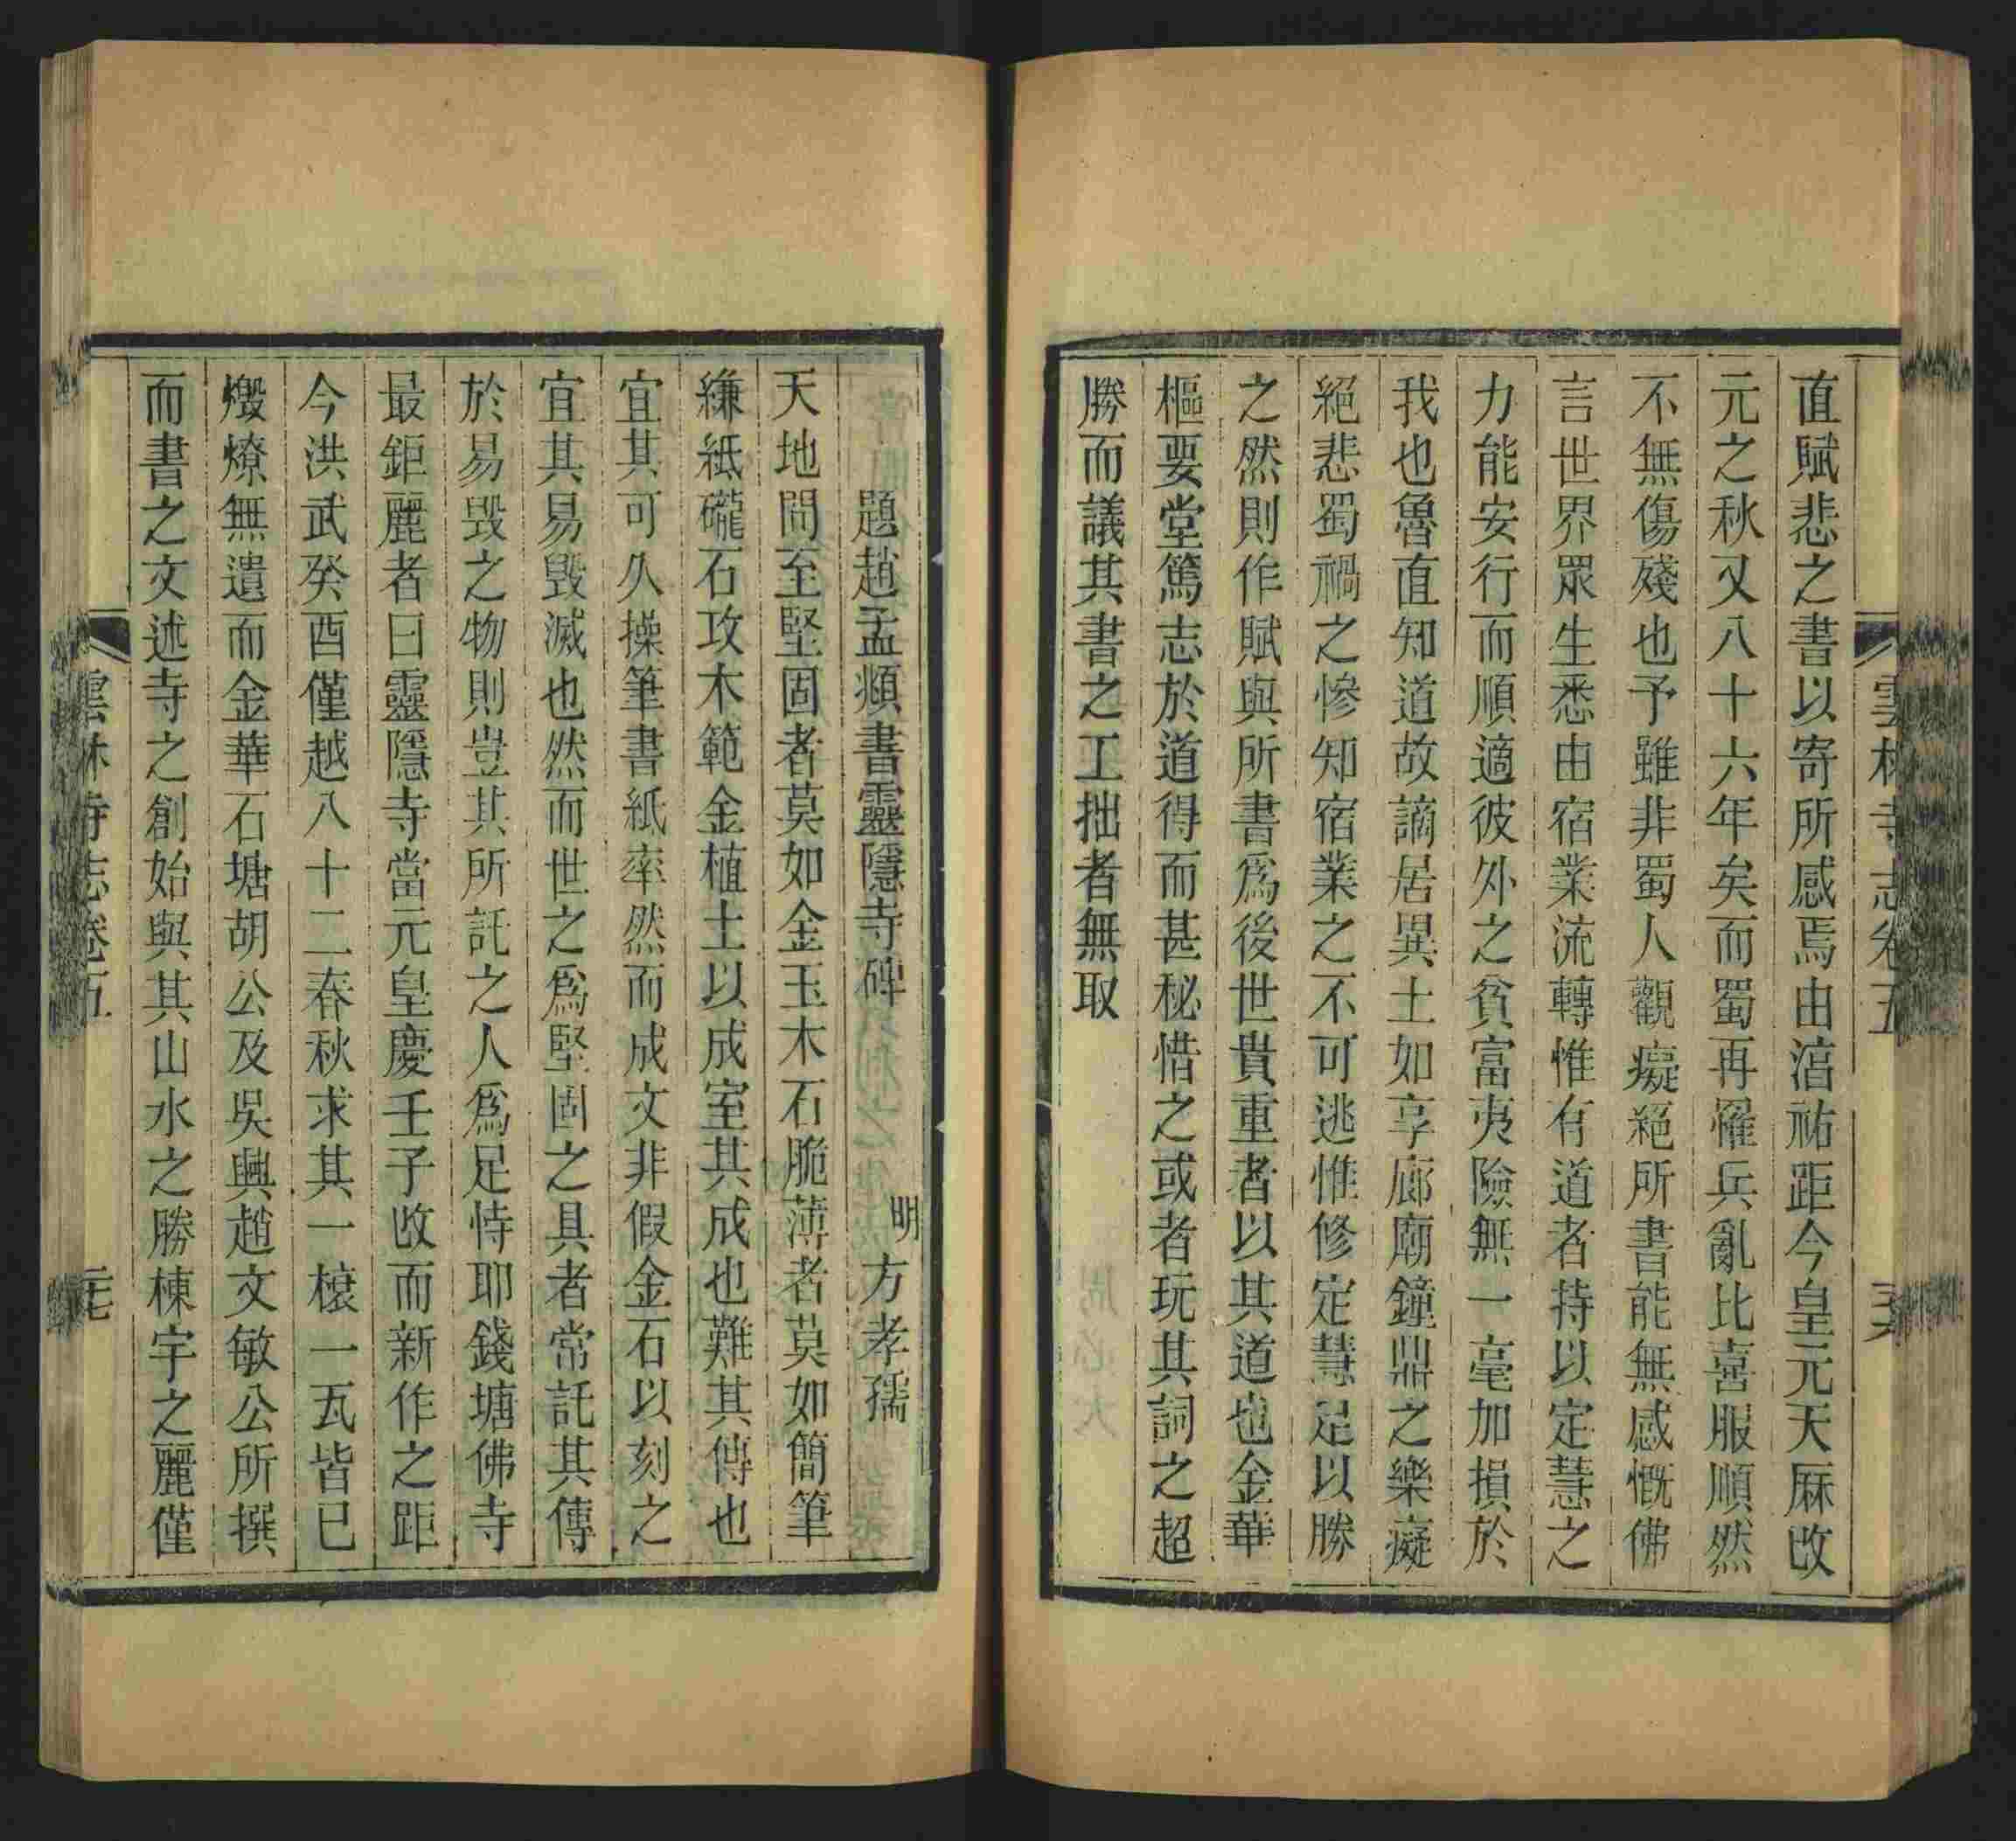 雲林寺志卷五
直賦悲之書以寄所感焉由淳祐距今皇元天厤改
元之秋又八十六年矣而蜀再罹兵亂比喜服順然
不無傷殘也予雖非蜀人觀癡絕所書能無感慨佛
言世界眾生悉由宿業流轉惟有道者持以定慧之
力能安行而順適彼外之貧富夷險無一毫加損於
我也魯直知道故謫居異土如享廊廟鐘鼎之樂癡
絕悲蜀禍之慘知宿業之不可逃惟修定慧足以勝
之然則作賦與所書爲後世貴重者以其道也金華
樞要堂篤志於道得而甚秘惜之或者玩其詞之超
勝而議其書之工拙者無取
題趙孟頫書靈隱寺碑
明 方孝孺
天地間至堅固者莫如金玉木石脆薄者莫如簡筆
縑紙礲石攻木範金植土以成室其成也難其傳也
宜其可久操筆書紙率然而成文非假金石以刻之
宜其易毀滅也然而世之爲堅固之具者常託其傳
於易毀之物則豈其所託之人爲足恃耶錢塘佛寺
最鉅麗者曰靈隱寺當元皇慶壬子改而新作之距
今洪武癸酉僅越八十二春秋求其一榱一瓦皆已
燬燎無遺而金華石塘胡公及吳興趙文敏公所撰
而書之文述寺之創始與其山水之勝棟宇之麗僅
雲林寺志卷五